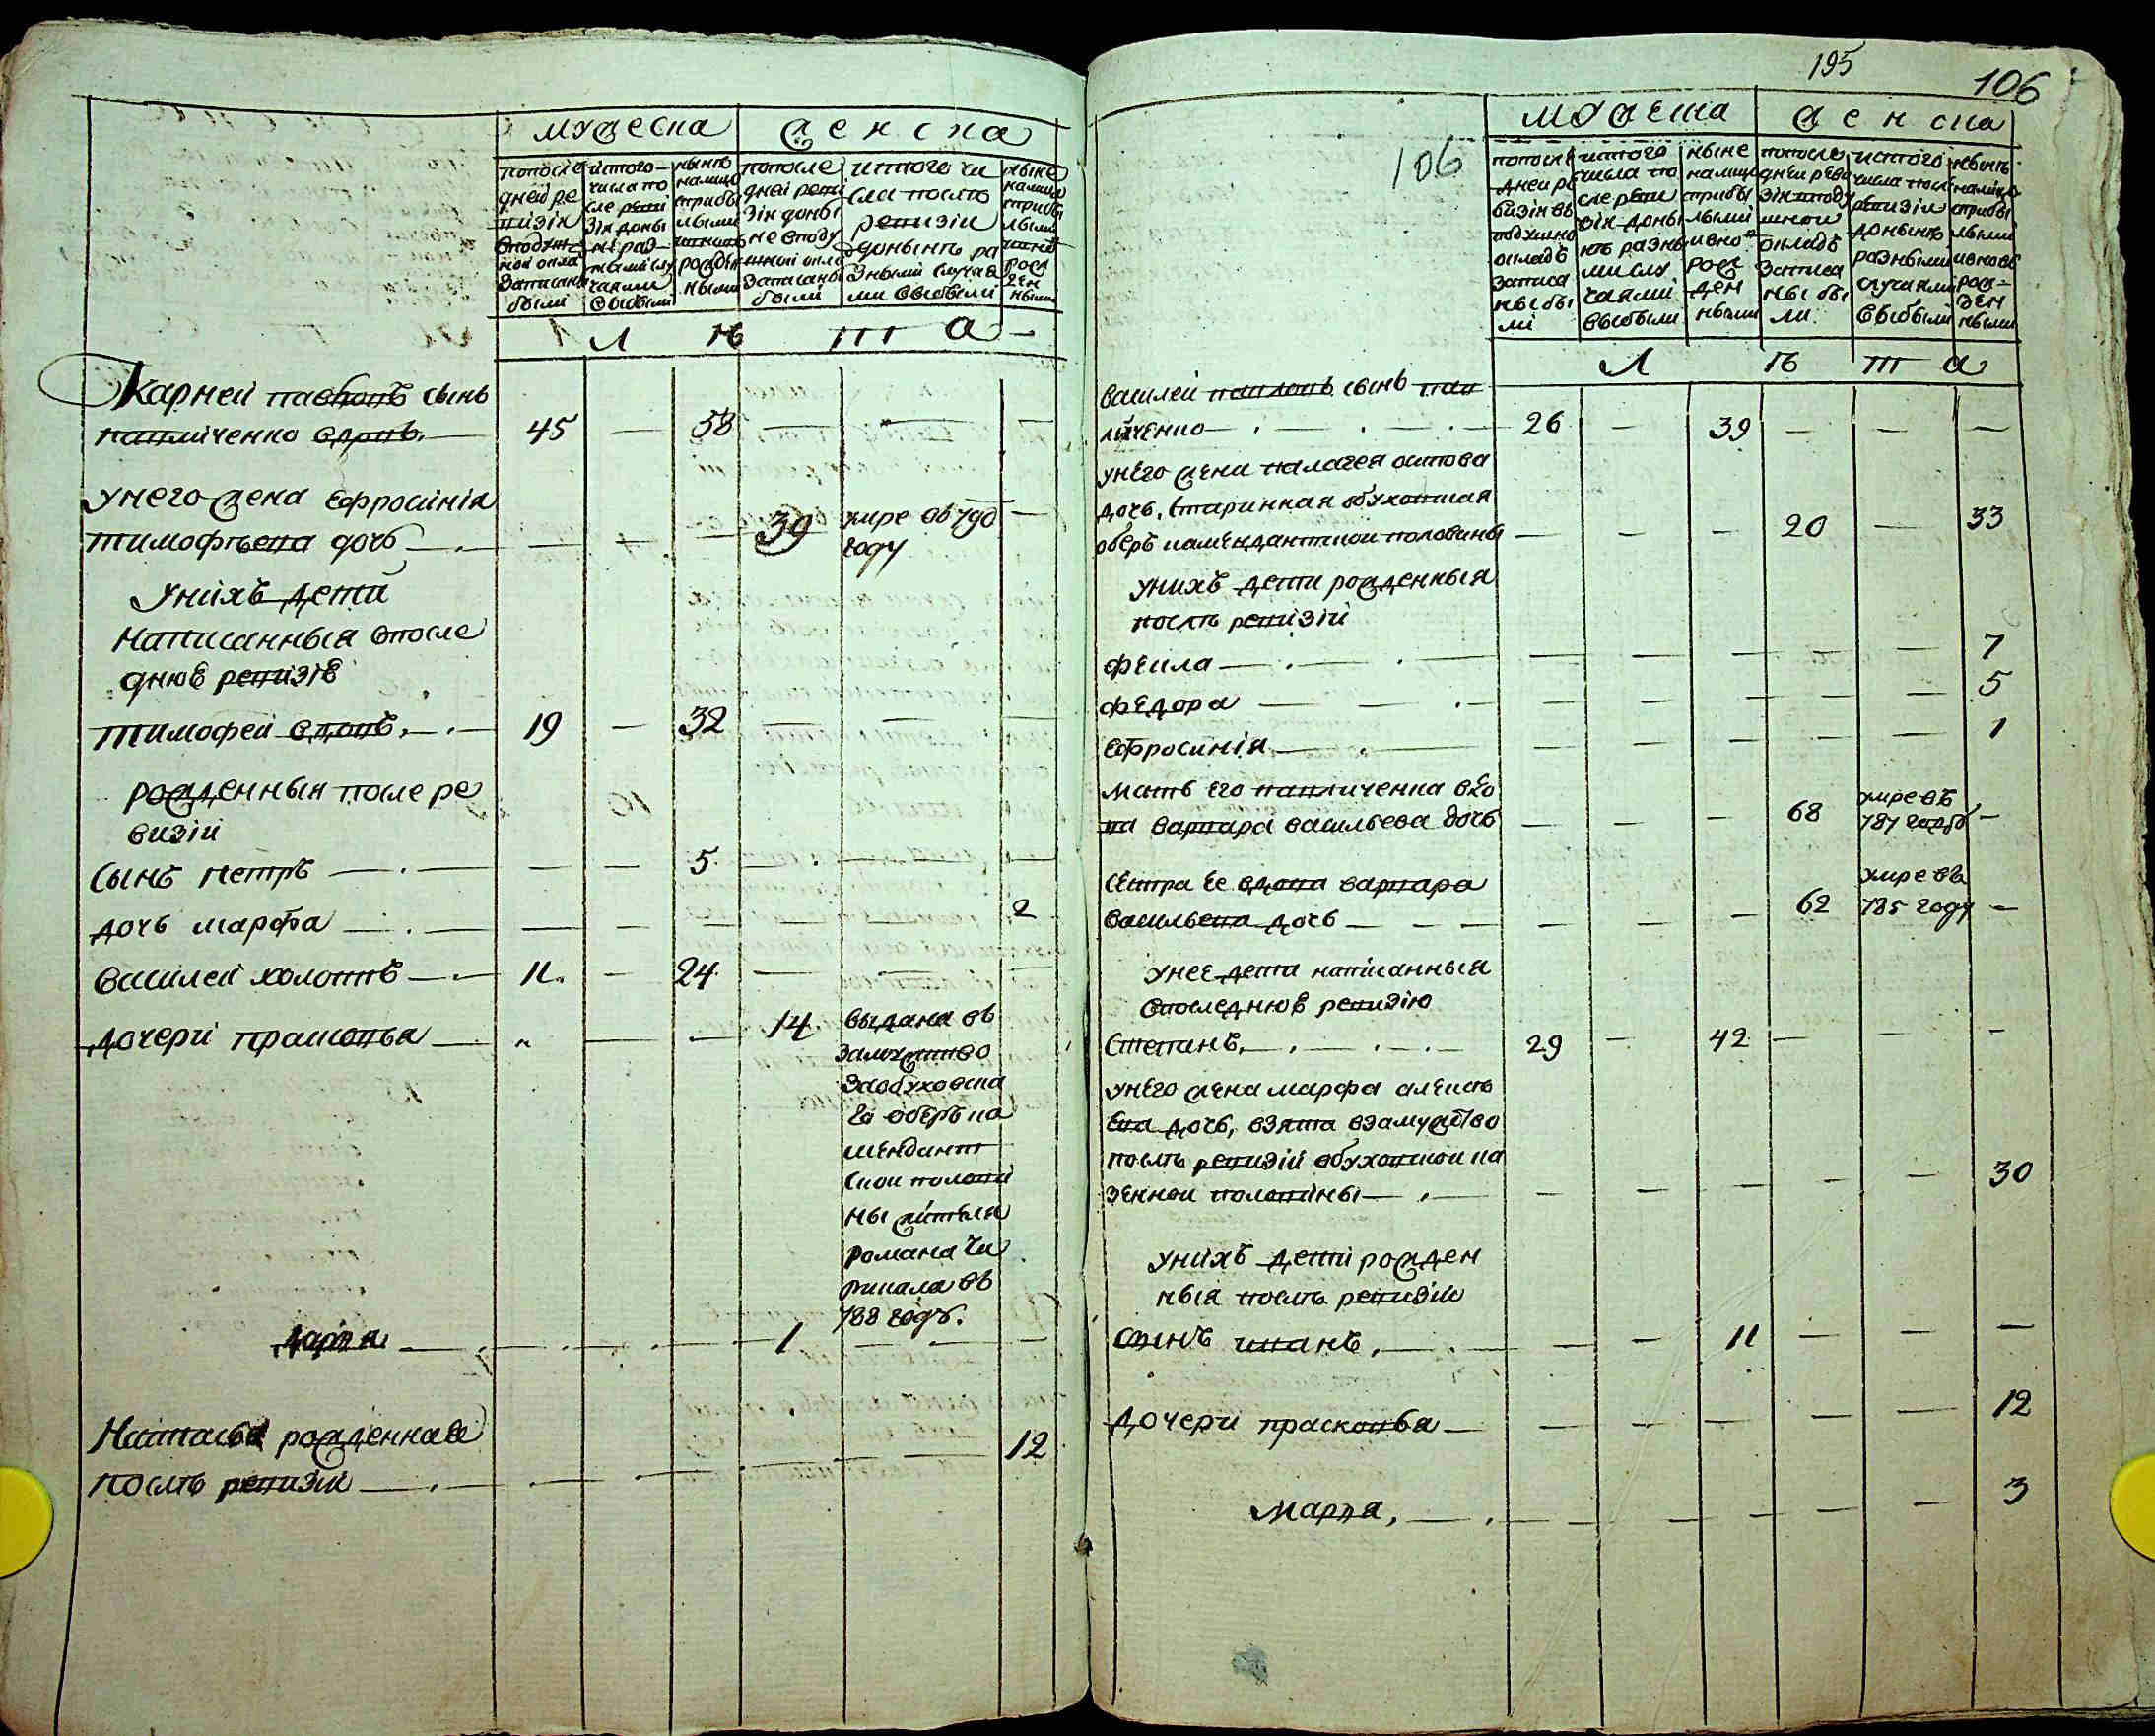 мужеска
женска
попосле
дней ре
визіи
вподуш
ной окла
записаны
были
истого
числа по
сле реви
зіи доны
не раз
ными слу
чаями
выбыли
нынѣ
налицо
сприбы
лыми
рожден
ными
попосле
дней реви
зіи доны
не вподу
шной окла
записаны
были
истого чи
сла послѣ
ревизіи
донынѣ ра
зными случая
ми выбыли
ныне
налицо
сприбы
лыми
рож
ден
ными
Л ѣ т а
Карней павловъ сынъ
павличенко вдовъ. 45 — 58 — — —
унего жена Ефросинія
тимофѣева дочь — — — — 39 умре въ 790 —
году
Унихъ дети
написанныя впосле
днюю ревизію
тимофей вдовъ. 19 — 32 — — —
рожденныя после ре
визіи
сынъ петръ — — — 5 — — —
дочь марфа — — — — — — 2
василей холостъ — 11. — 24 — — —
дочери прасковья — — — 14. выдана въ
замужство
заобуховска
го оберъ ко
мендант
ской полови
ны жителя
романа чи
рикала въ
788 годъ.
дарья — 1 — —
Настасья рожденная
послѣ ревизіи — 12
195
106
106
мужеска
женска
попосле
дней ре
визіи въ
подушно
окладѣ
записа
ны бы
ли
истого
числа по
сле реви
зіи доны
нѣ разны
ми слу
чаями
выбыли
ныне
налицо
сприбы
лыми
ивно
рож
ден
ными
попосле
дней реви
зіи вподу
шном
окладѣ
записа
ны бы
ли
истого
числа посл
ревизіи
донынѣ
разными
случаями
выбыли
нынѣ
налицо
сприбы
лыми
ивновь
рож-
ден
ными
Л ѣ т а
василей павловъ сынъ пав
личенко — 26 — 39 — — —
унего жена палагея остова
дочь, старинная обуховская
оберъ камендантской половины — — — 20 — 33
унихъ дети рожденныя
послѣ ревизіи
фекла — 7
федора — 5
ефросинія — 1
мать его павличенка вдо
ва варвара васильева дочь — — — 68 умре въ
787 году —
сестра ее вдова варвара
васильева дочь — — — 62 умре въ
785 году —
унее дети написанныя
впоследнюю ревизію
степанъ. 29 — 42 — — —
унего жена марфа алексѣ
ева дочь, взята взамужство
послѣ ревизіи обуховской ка
зенной половины — 30
унихъ дети рожден
ныя послѣ ревизіи
сынъ иванъ. — — 11 — — —
дочери прасковья — 12
марья. — 3